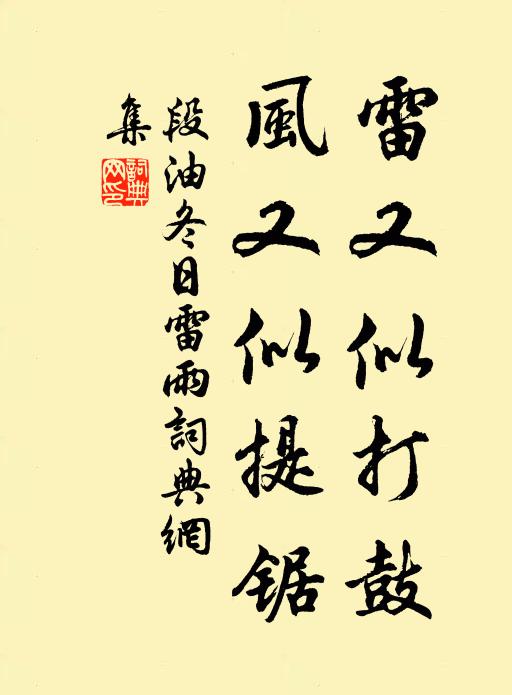 雷又似打鼓
風又似提锯
段油冬日雷雨詞典網
集
詞典网印